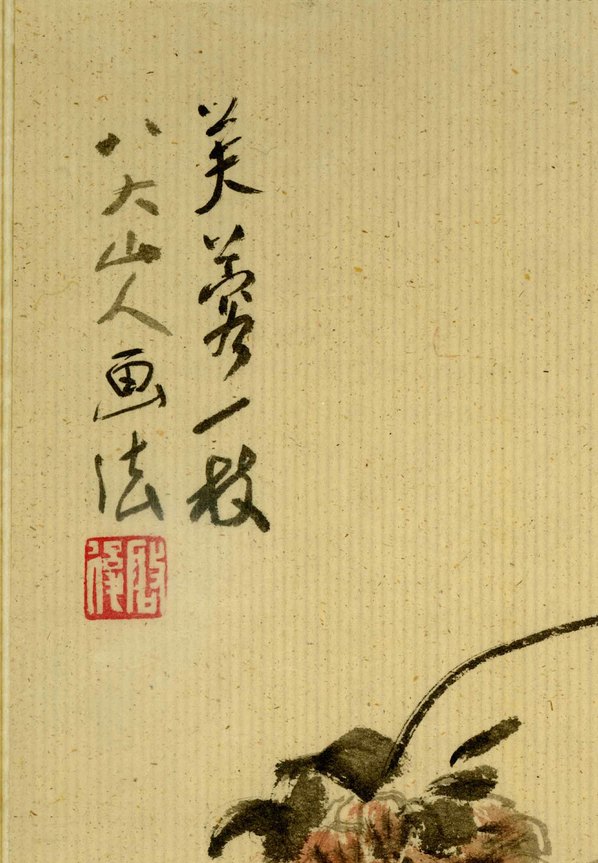 芙蓉一枝
八大山人画法